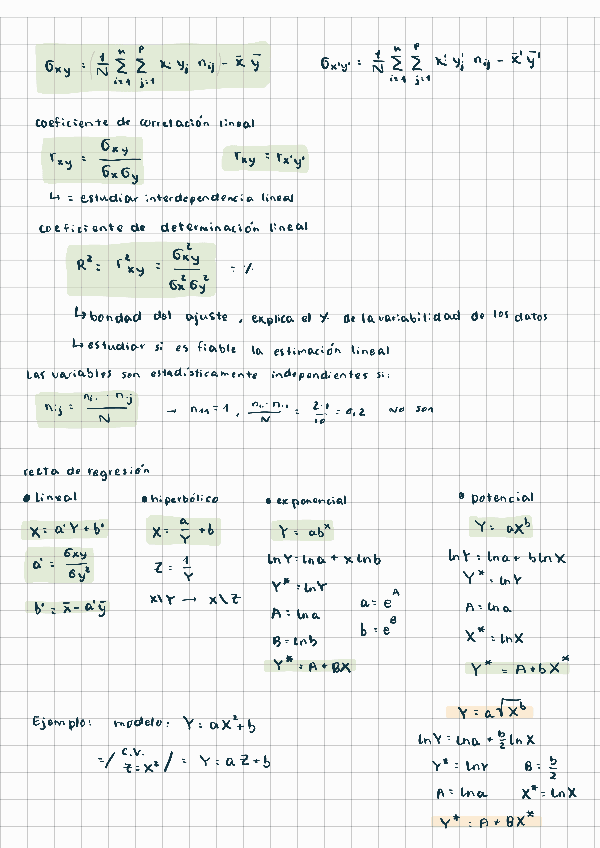 σxy = (1/N Σ(i=1, n) Σ(j=1, p) xi yj nij) - x̄ ȳ
σx'y' = 1/N Σ(i=1, n) Σ(j=1, p) xi' yj' nij - x̄' ȳ'
coeficiente de correlación lineal
rxy = σxy / σxσy
rxy = rx'y'
↳ = estudiar interdependencia lineal
coeficiente de determinación lineal
R² = r²xy = σ²xy / σx²σy² = %
↳ bondad del ajuste, explica el % de la variabilidad de los datos
↳ estudiar si es fiable la estimación lineal
Las variables son estadísticamente independientes si:
nij = ni. · n.j / N → n11 = 1, n1. · n.1 / N = 2·1 / 10 = 0,2 no son
recta de regresión
• lineal
X = a'Y + b'
a' = σxy / σy²
b' = x̄ - a'ȳ
• hiperbólico
X = a/Y + b
Z = 1/Y
X\Y → X\Z
• exponencial
Y = abˣ
lnY = lna + x lnb
Y* = lnY
A = lna
B = lnb
Y* = A + BX
a = e^A
b = e^B
• potencial
Y = aX^b
lnY = lna + b lnX
Y* = lnY
A = lna
X* = lnX
Y* = A + bX*
Y = a√X^b
lnY = lna + b/2 lnX
Y* = lnY B = b/2
A = lna X* = lnX
Y* = A + BX*
Ejemplo: modelo: Y = aX² + b
= / C.V. Z = X² / = Y = aZ + b